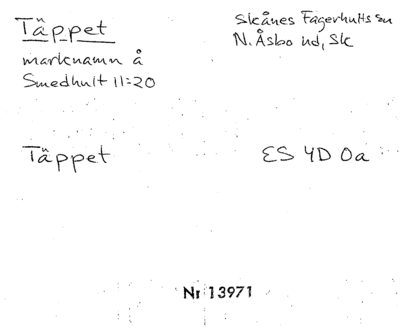 Täppet
marknamn å
Smedhult 11:20
Skånes Fagerhults sn
N. Åsbo hd, Sk
Täppet
ES 4D 0a
Nr 13971